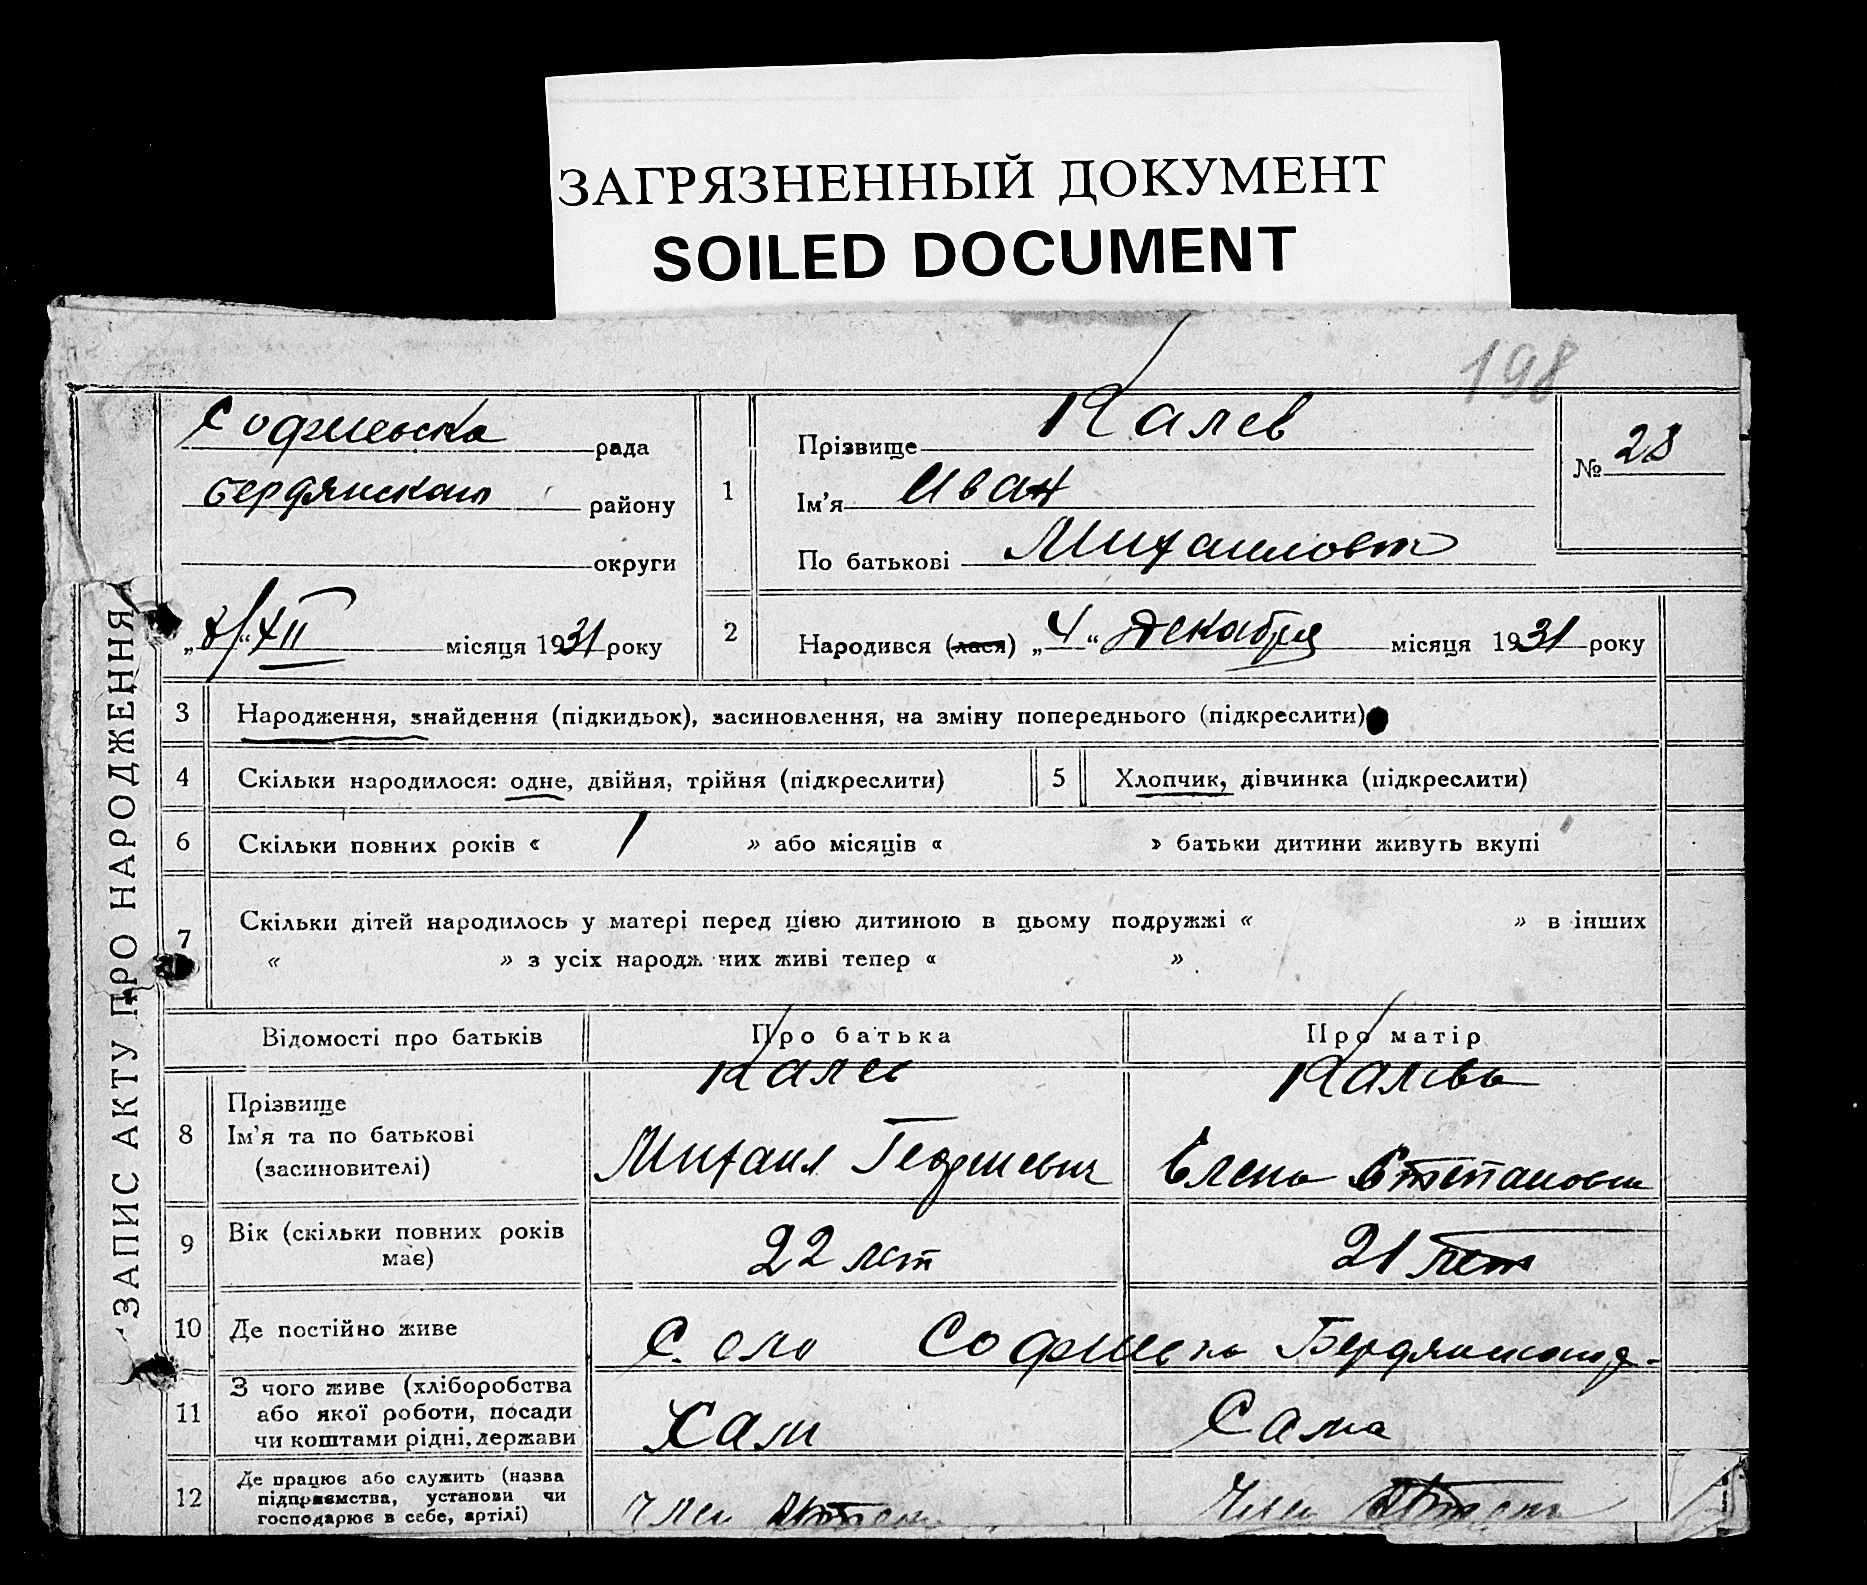 ЗАГРЯЗНЕННЫЙ ДОКУМЕНТ
SOILED DOCUMENT
198
ЗАПИС АКТУ ПРО НАРОДЖЕННЯ
рада
району
округи
XII місяця 1931 року
1
Прізвище Калев
Ім'я Иван
По батькові
№ 28
2
Народився (лася) „4“ Декабря місяця 1931 року
3 Народження, знайдення (підкидьок), засиновлення, на зміну попереднього (підкреслити)
4 Скільки народилося: одне, двійня, трійня (підкреслити)
5 Хлопчик, дівчинка (підкреслити)
6 Скільки повних років « 1 » або місяців « » батьки дитини живуть вкупі
7 Скільки дітей народилось у матері перед цією дитиною в цьому подружжі « » в інших
« » з усіх народж них живі тепер « »
Відомості про батьків
Про батька
Про матір
8 Прізвище
Ім'я та по батькові
(засиновителі)
Калев
Михаил Георгиевич
Елена
9 Вік (скільки повних років
має)
22 лет
21 лет
10 Де постійно живе
Село
11 З чого живе (хліборобства
або якої роботи, посади
чи коштами рідні, держави
Сам
Сама
12 Де працює або служить (назва
підприємства, установи чи
господарює в себе, артілі)
Член
Член